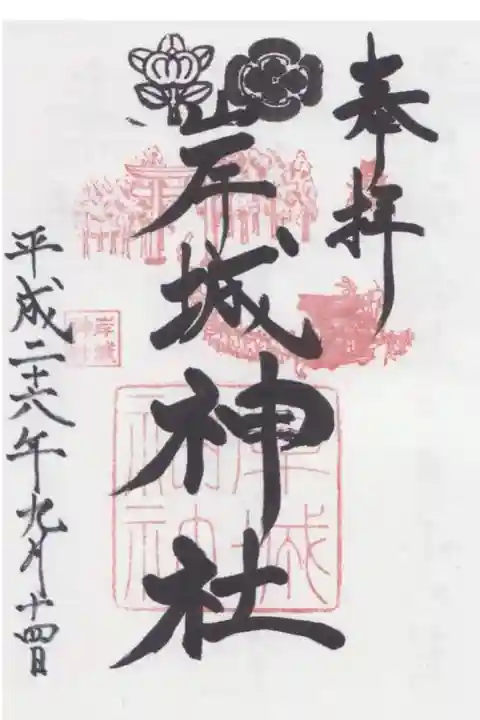 奉拝
岸城神社
平成二十六年九月十四日
岸城
神社
岸城
神社